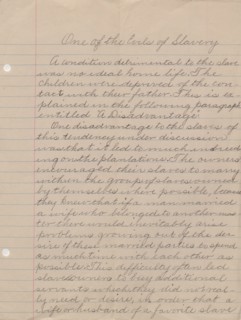 One of the Evils of Slavery
A condition detrimental to the slave
was no ideal home life. The
children were deprived of the con-
tact with their father. This is ex-
plained in the following paragraph
entitled A Disadvantage.
One disadvantage to the slaves of
this tendency under discussion
was that it led to much
ing on the plantations. The owners
encouraged their slaves to marry
within the group of slaves owned
by themselves where possible, because
they knew that if a man married
a wife who belonged to another mas-
ter there would inevitably arise
problems growing out of the de-
sire of these married parties to spend
as much time with each other as
possible. This difficulty often led
slaveowners to buy additional
servants which they did not real-
ly need or desire, in order that a
wife or husband of a favorite slave